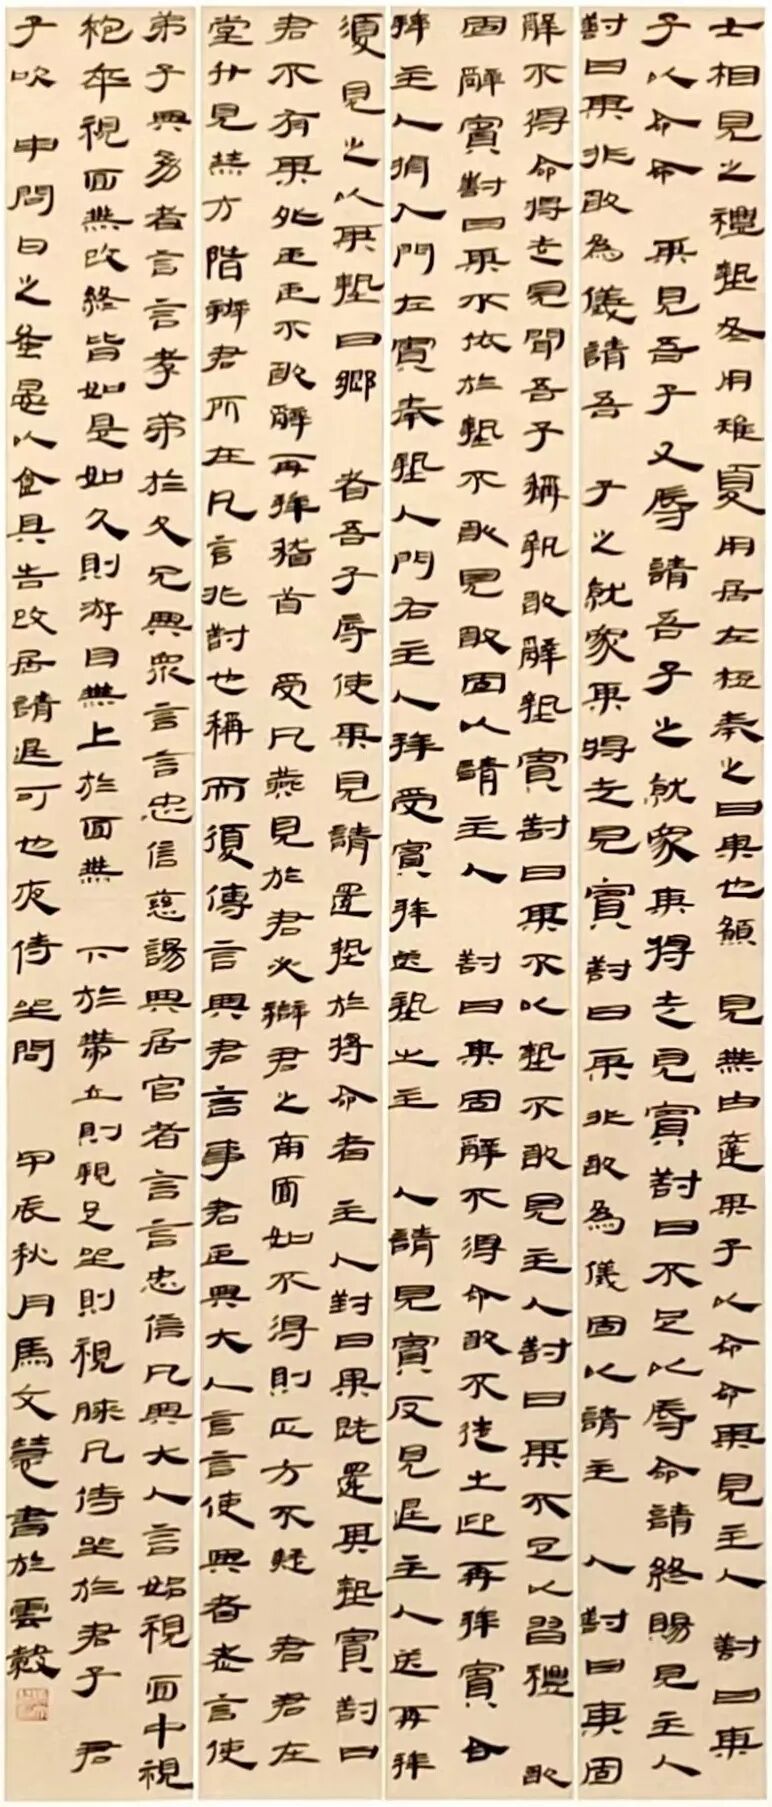 士相見之禮摯冬用雉夏用居左梪奉之曰某也願見無由達某子以命命某見主人對曰某
子以命命某見吾子又辱請吾子之就家某將走見賓對曰不足以辱命請終賜見主人
對曰某非敢為儀請吾子之就家某將走見賓對曰某非敢為儀固以請主人對曰某固
辭不得命將走見聞吾子稱執敢辭摯賓對曰某不以摯不敢見主人對曰某不足以習禮敢
固辭賓對曰某不依於摯不敢見敢固以請主人對曰某固辭不得命敢不從土迎再拜賓合
拜主人揖入門左賓奉摯入門右主人拜受賓拜送摯出主人請見賓反見退主人送再拜
須見之以其摯曰鄉者吾子辱使某見請還摯於將命者主人對曰某既還其摯賓對曰
君不有其外臣臣不敢辭再拜稽首受凡燕見於君必辯君之南面如不得則正方不疑君君在
堂升見無方階辨君所在凡言非對也稱而須傳言與君言事君臣與大人言言使與者老言使
弟子與幼者言言孝弟於父兄與眾言言忠信慈諹與居官者言言忠信凡與大人言始視面中視
袍卒視面無改終皆如是如父則游目無上於面無下於帶立則視足坐則視膝凡侍坐於君子君
子吹申問日之蚤晏以食具告改居請退可也夜侍坐問甲辰秋月馬文慧書於雲穀